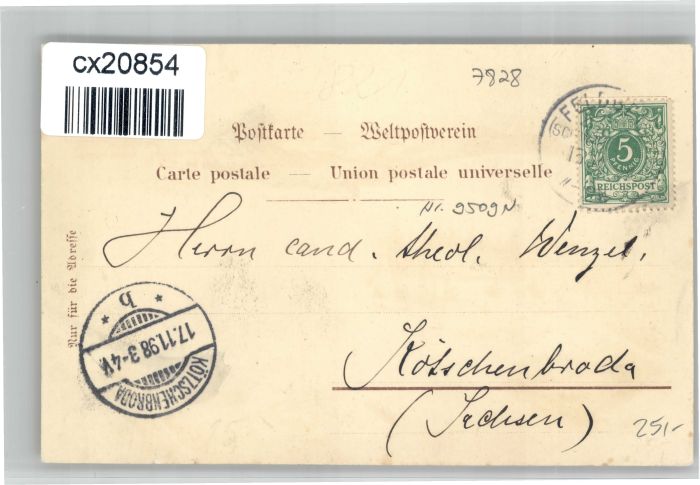 cx20854
7828
Postkarte — Weltpostverein
Carte postale — Union postale universelle
5
PFENNIG
REICHSPOST
Nr. 9509N
Nur für die Adresse
Herrn cand. theol. Wenzel.
* b *
17.11.98 3-4V.
KÖTZSCHENBRODA
Kötschenbroda
(Sachsen)
251-